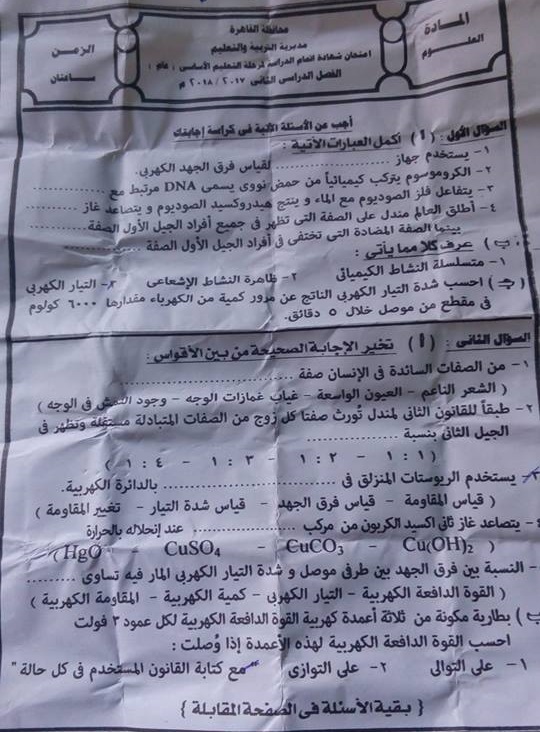 المادة
العلوم
محافظة القاهرة
مديرية التربية والتعليم
امتحان شهادة اتمام الدراسة لمرحلة التعليم الأساسى ( عام )
الفصل الدراسى الثانى ٢٠١٧ / ٢٠١٨ م
الزمن
ساعتان
أجب عن الأسئلة الآتية فى كراسة إجابتك
السؤال الأول : ( أ ) أكمل العبارات الآتية :
١- يستخدم جهاز .................... لقياس فرق الجهد الكهربى.
٢- الكروموسوم يتركب كيميائياً من حمض نووى يسمى DNA مرتبط مع ............
٣- يتفاعل فلز الصوديوم مع الماء و ينتج هيدروكسيد الصوديوم و يتصاعد غاز ............
٤- أطلق العالم مندل على الصفة التى تظهر فى جميع أفراد الجيل الأول الصفة............
بينما الصفة المضادة التى تختفى فى أفراد الجيل الأول الصفة ............
( ب ) عرف كلا مما يأتى :
١- متسلسلة النشاط الكيميائى ٢- ظاهرة النشاط الإشعاعى ٣- التيار الكهربى
( جـ ) احسب شدة التيار الكهربى الناتج عن مرور كمية من الكهرباء مقدارها ٦٠٠٠ كولوم
فى مقطع من موصل خلال ٥ دقائق.
السؤال الثانى : ( أ ) تخير الإجابة الصحيحة من بين الأقواس :
١- من الصفات السائدة فى الإنسان صفة ....................
( الشعر الناعم - العيون الواسعة - غياب غمازات الوجه - وجود النمش فى الوجه )
٢- طبقاً للقانون الثانى لمندل تُورث صفتا كل زوج من الصفات المتبادلة مستقلة وتظهر فى
الجيل الثانى بنسبة ....................
( ١ : ١ - ٢ : ١ - ٣ : ١ - ٤ : ١ )
٣- يستخدم الريوستات المنزلق فى .................... بالدائرة الكهربية.
( قياس المقاومة - قياس فرق الجهد - قياس شدة التيار - تغيير المقاومة )
٤- يتصاعد غاز ثانى اكسيد الكربون من مركب .................... عند إنحلاله بالحرارة
( Cu(OH)₂ - CuCO₃ - CuSO₄ - HgO )
- النسبة بين فرق الجهد بين طرفى موصل و شدة التيار الكهربى المار فيه تساوى ............
( القوة الدافعة الكهربية - التيار الكهربى - كمية الكهربية - المقاومة الكهربية )
ب ) بطارية مكونة من ثلاثة أعمدة كهربية القوة الدافعة الكهربية لكل عمود ٣ فولت
احسب القوة الدافعة الكهربية لهذه الأعمدة إذا وُصلت :
١- على التوالى ٢- على التوازى "مع كتابة القانون المستخدم فى كل حالة"
{ بقية الأسئلة فى الصفحة المقابلة }